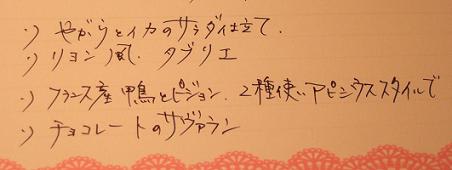 ゝ) やがらとイカのサラダ仕立て.
ゝ) リヨン風. タブリエ
ゝ) フランス産 鴨とピジョン. 2種使い アピシウススタイルで
ゝ) チョコレートのサヴァラン